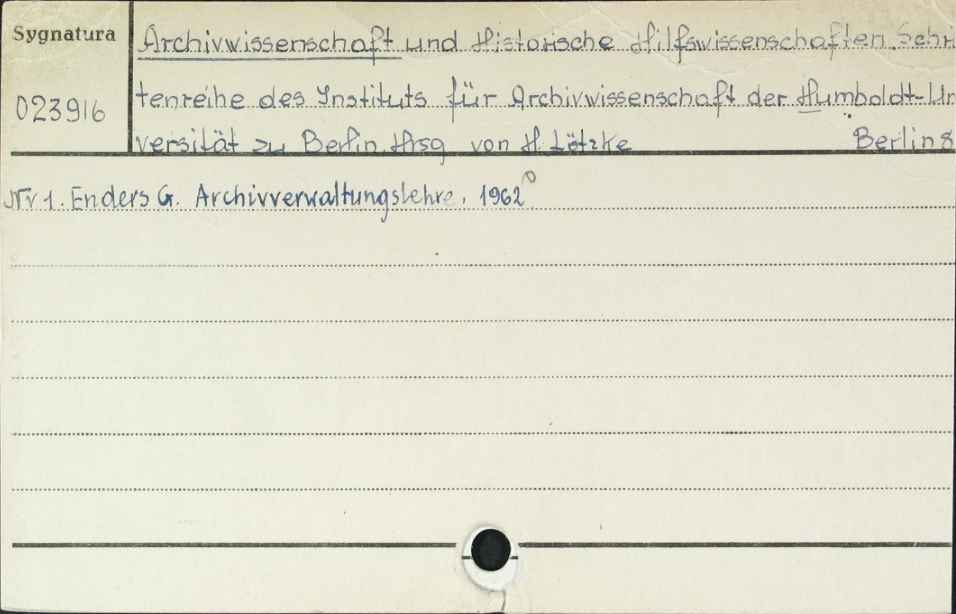 Sygnatura
Archivwissenschaft und Historische Hilfswissenschaften. Schri
023916
tenreihe des Instituts für Archivwissenschaft der Humboldt-Un
versität zu Berlin. Hrsg von H. Lötzke Berlin 8
Nr 1. Enders G. Archivverwaltungslehre. 1962